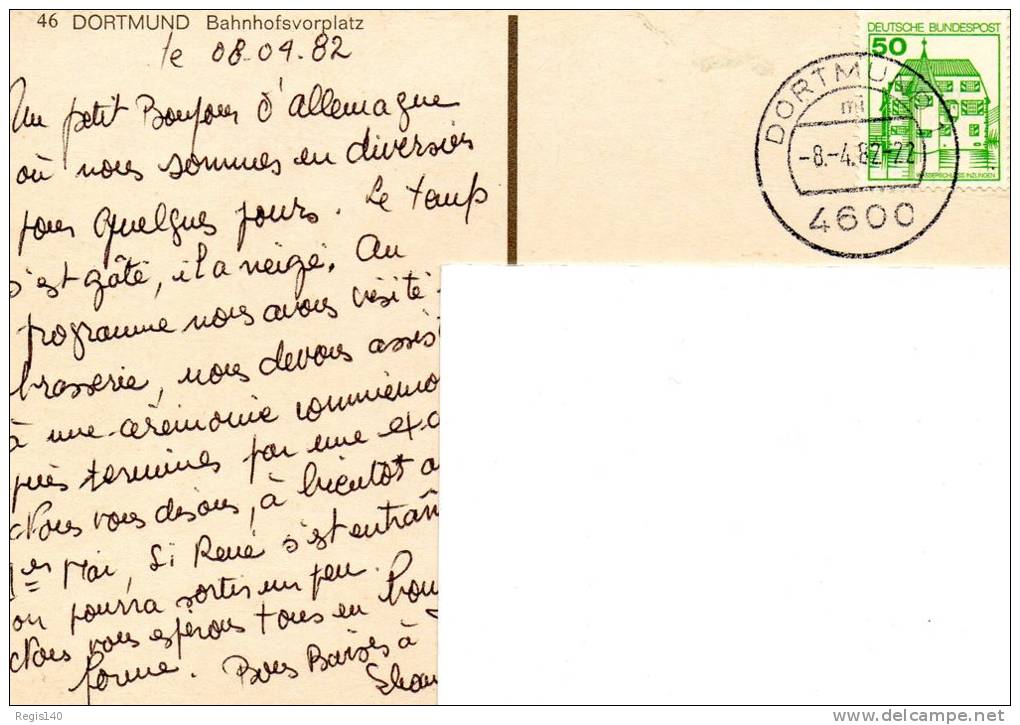 46 DORTMUND Bahnhofsvorplatz
le 08.04.82
Un petit Bonjour d'allemagne
où nous sommes en diversiés
pour quelques jours. Le temps
s'est gâté, il a neigé. Au
programme nous avons visité
brasserie, nous devons assis
à une cérémonie commémo
puis terminer par une
Nous vous disons, à bientôt a
1er Mai, Si René s'est entraîn
on pourra sortir un peu.
Nous vous espérons tous en bon
forme. Bons Baisers à
DEUTSCHE BUNDESPOST
50
WASSERSCHLOSS INZLINGEN
DORTMUND
-8.-4.82-22
4600
Regis140
delcampe.net